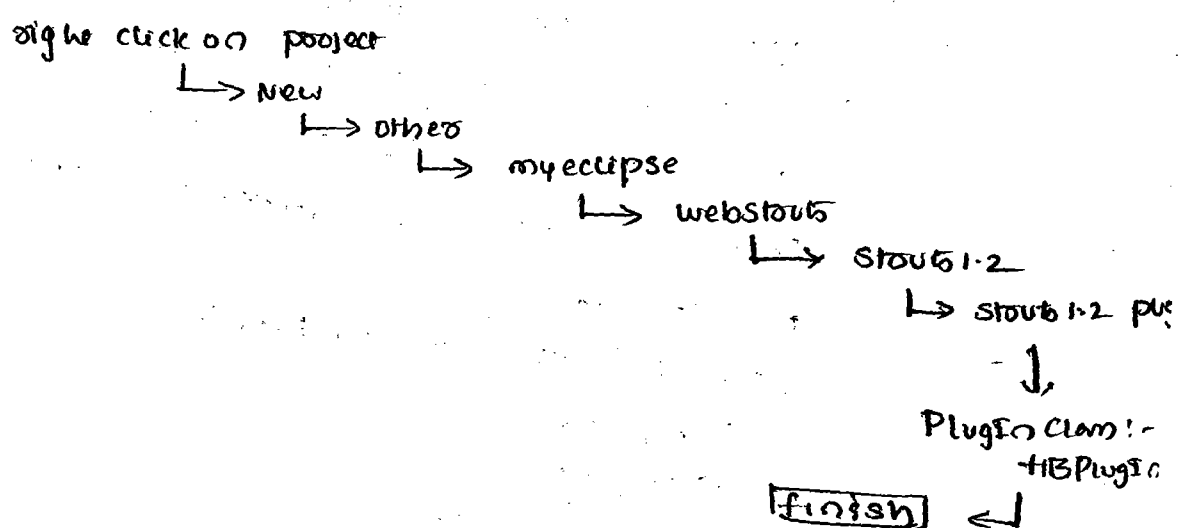 right click on project
↳ New
↳ other
↳ myeclipse
↳ webstruts
↳ Struts 1.2
↳ struts 1.2 plu
PlugIn Class:-
HBPlugIn
finish